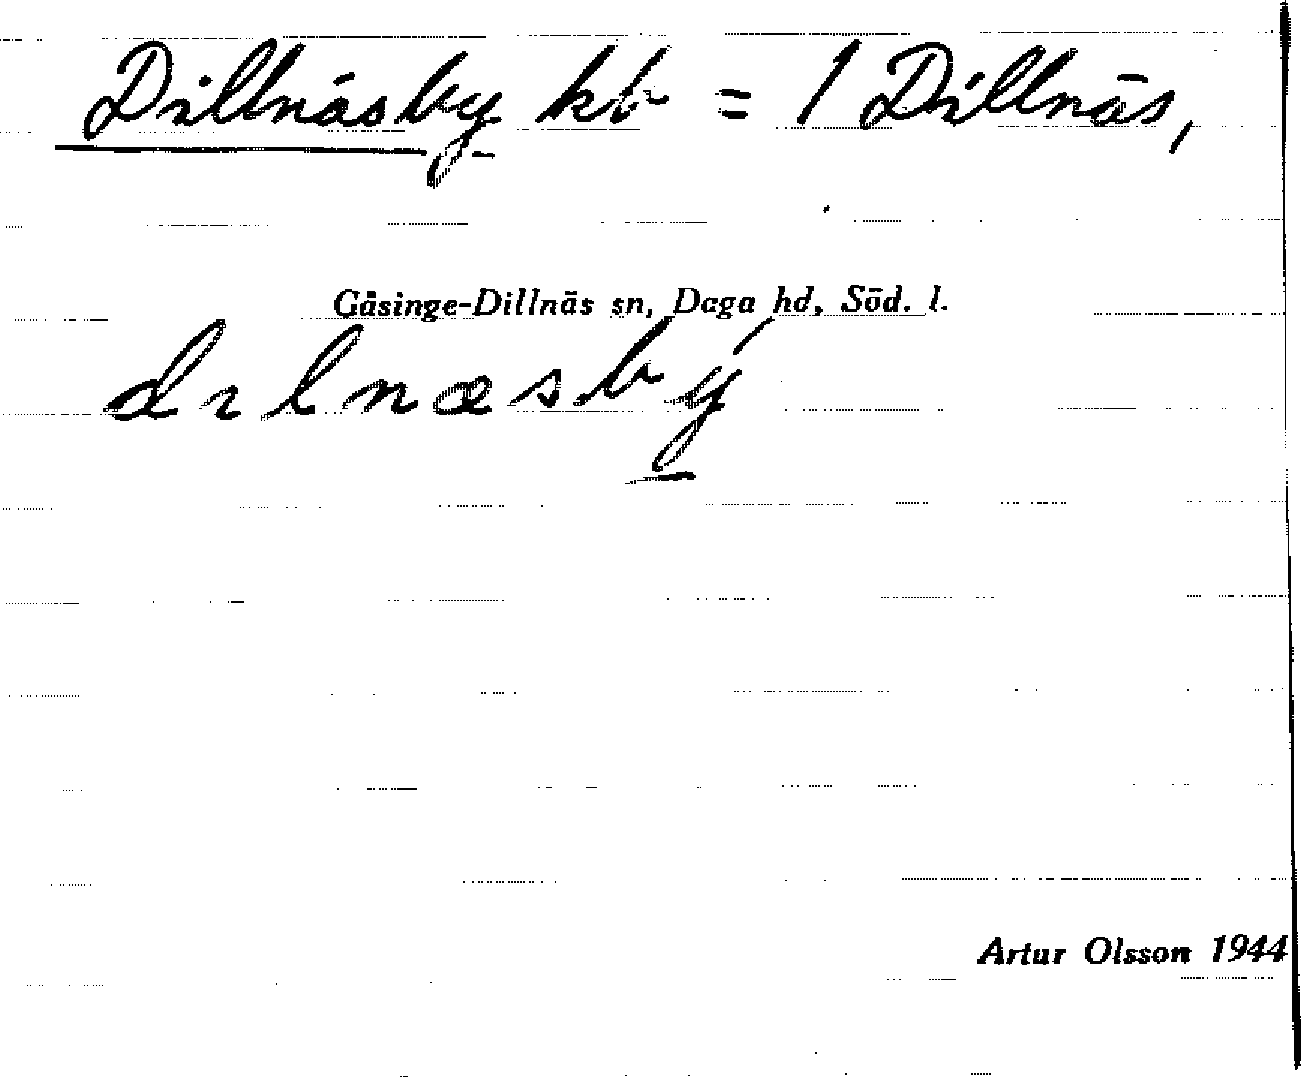 Dillnäsby kb = 1 Dillnäs,
Gåsinge-Dillnäs sn, Daga hd, Söd. l.
dılnæsbý
Artur Olsson 1944